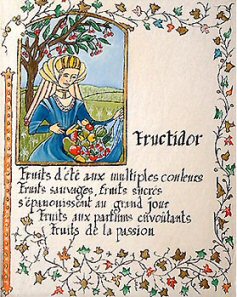 Fructidor
Fruits d'été aux multiples couleurs
Fruits sauvages, fruits sucrés
s'épanouissent au grand jour
Fruits aux parfums envoutants
Fruits de la passion